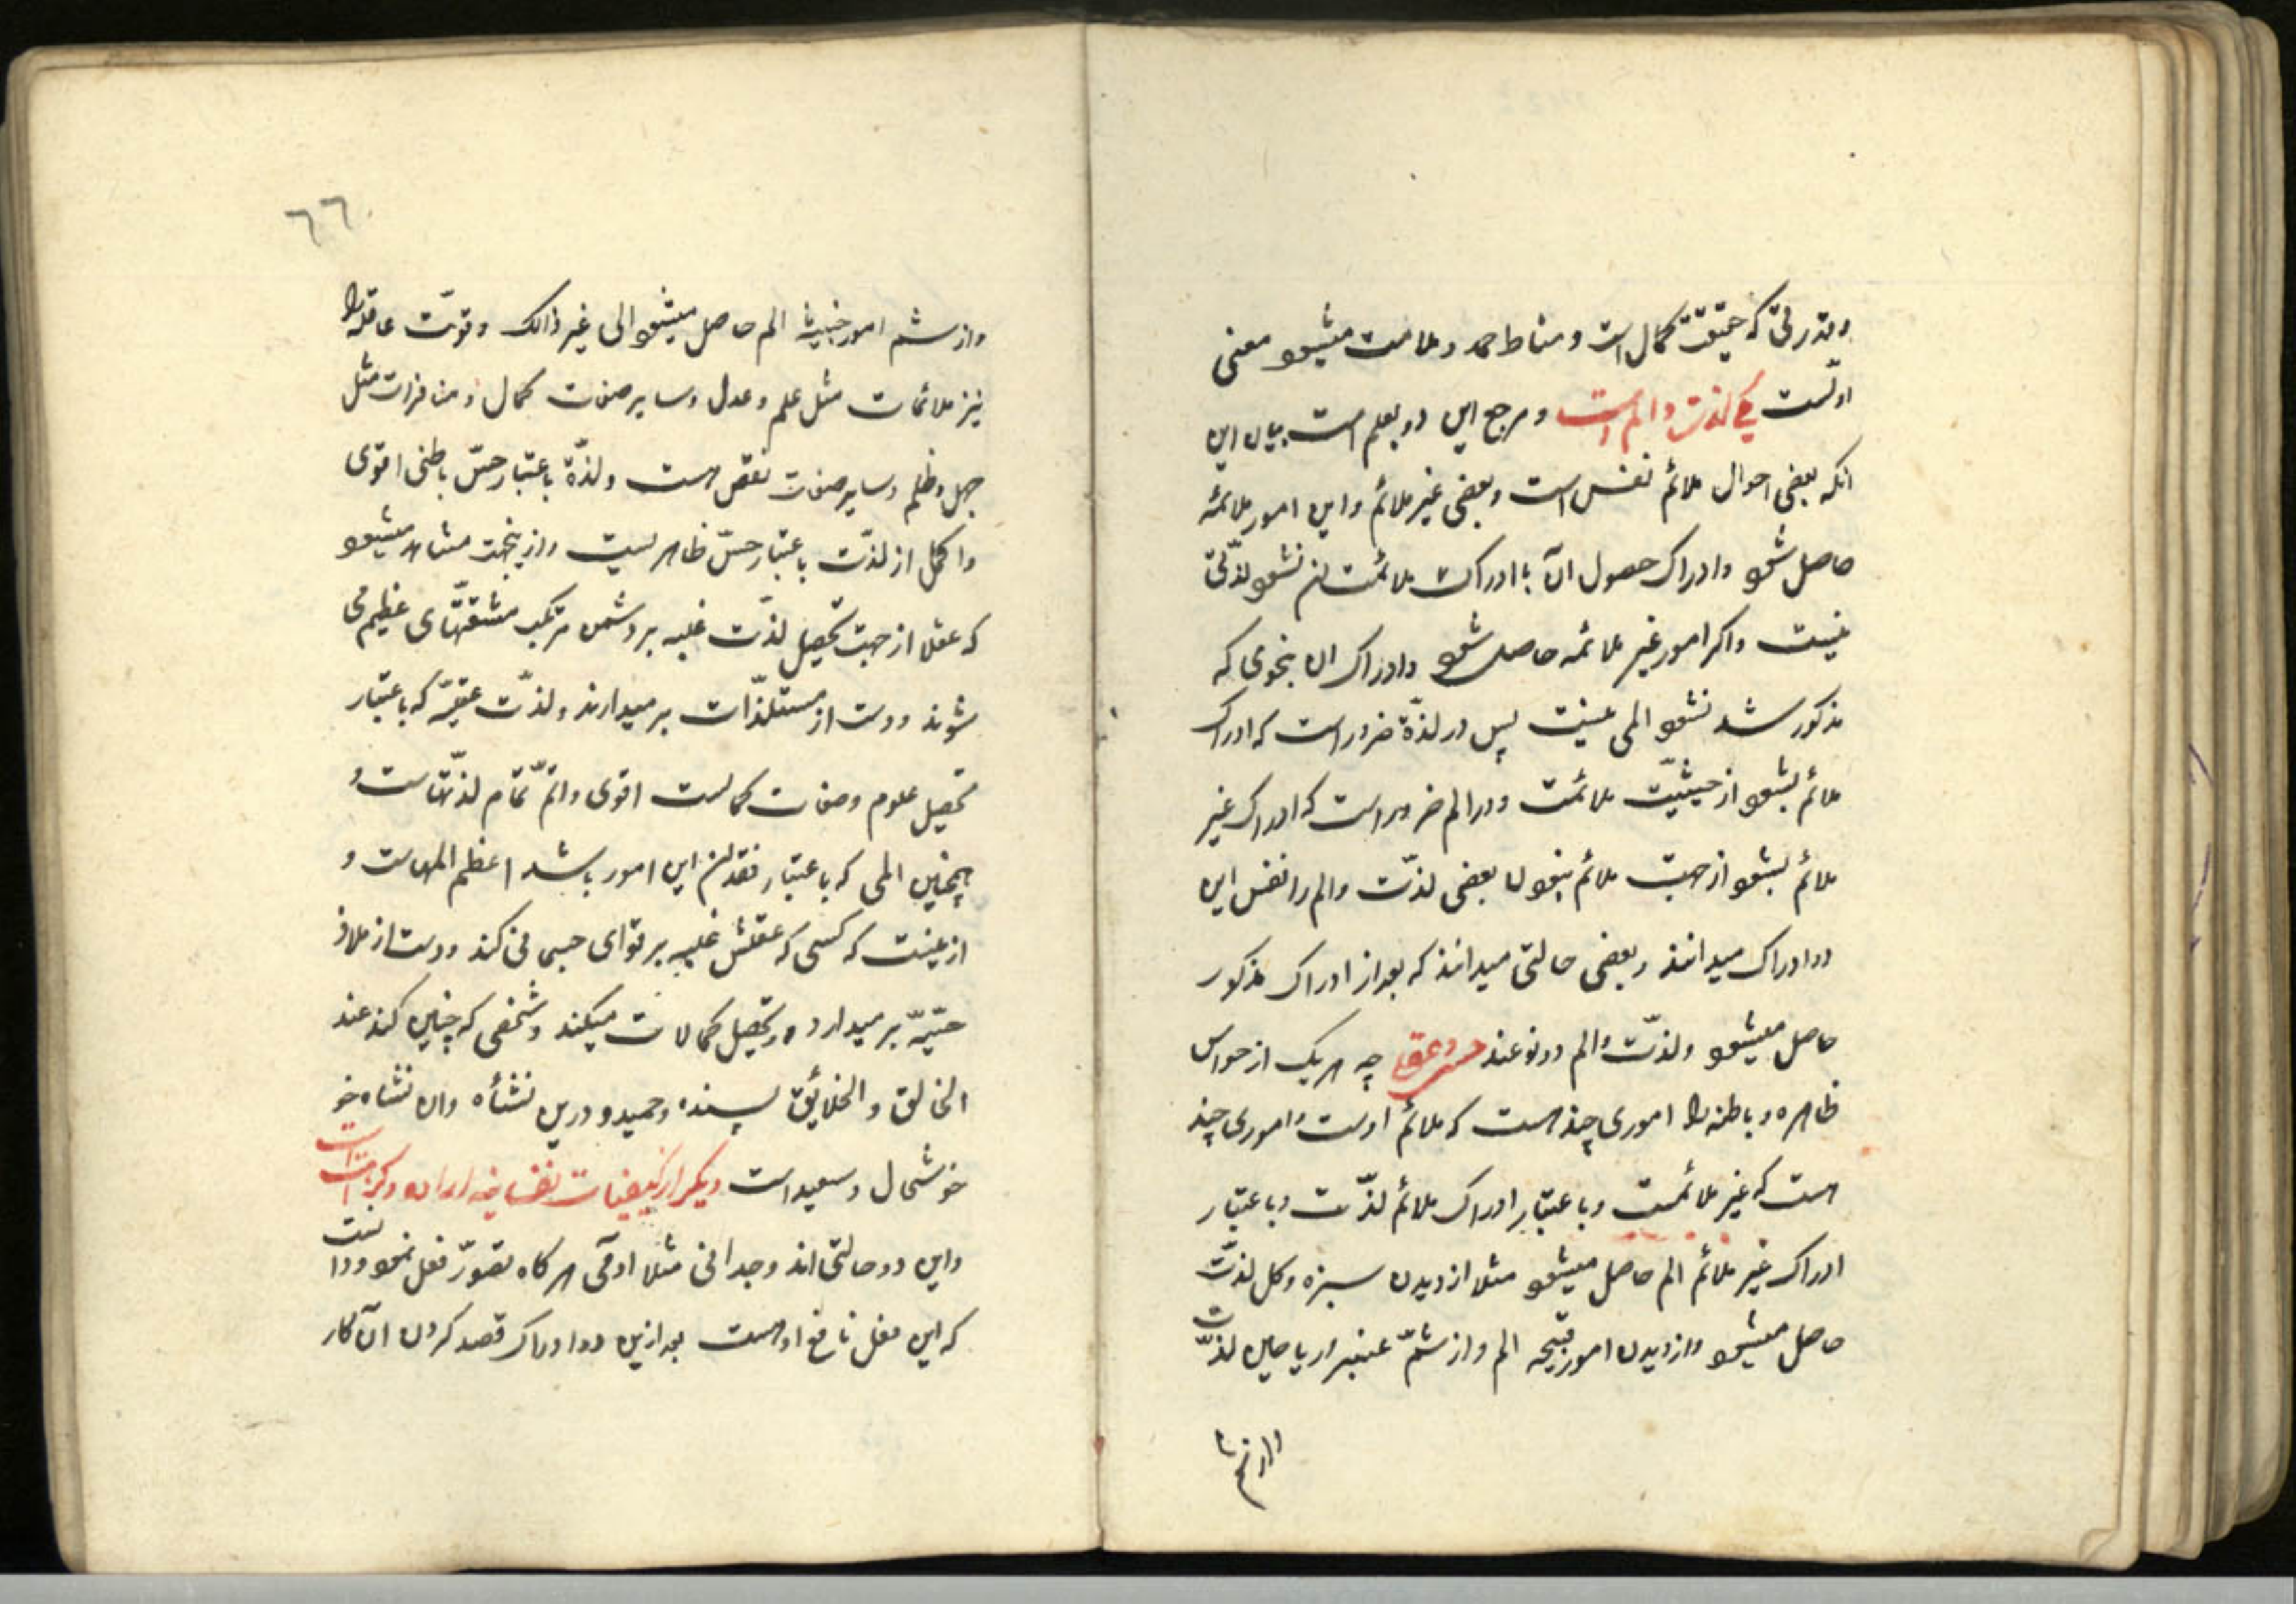 وقدرتی که حقیقة کمال است و مناط حمد و ملامت میشود معنی
اولست یکی لذت و الم است و مرجع این دو بعلم است بیان این
انکه بعضی احوال ملائم نفس است و بعضی غیر ملائم و این امور ملائمه
حاصل شود و ادراک حصول آن با ادراک ملائمت ان نشود لذّتی
نیست و اکر امور غیر ملائمه حاصل شود و ادراک ان بنحوی که
مذکور شد نشود المی نیست پس در لذّة ضرور است که ادراک
ملائم بشود از حیثیّت ملائمت و در الم ضرور است که ادراک غیر
ملائم بشود از جهت ملائم نبودن بعضی لذّت و الم را نفس این
دو ادراک میدانند و بعضی حالتی میدانند که بعد از ادراک مذکور
حاصل میشود و لذّت و الم دو نوعند حسی و عقلی چه هر یک از حواس
ظاهره و باطنه را اموری چند هست که ملائم اوست و اموری چند
هست که غیر ملائمست و با عتبار ادراک ملائم لذّت و با عتبار
ادراک غیر ملائم الم حاصل میشود مثلا از دیدن سبزه و کل لذّت
حاصل میشود و از دیدن امور قبیحه الم و از شمّ عنبر و ریاحین لذّت
و از شم
٦٦
و از شم امور خبیثه الم حاصل میشود الی غیر ذالک و قوّت عاقله را
نیز ملائمات مثل علم و عدل و سایر صفات کمال و منافرات مثل
جهل و ظلم و سایر صفات نقص هست و لذّة با عتبار حسّ باطنی اقوی
و اکمل از لذّت با عتبار حسّ ظاهریست و ازینجهت مشاهد میشود
که عقلا از جهت تحصیل لذّت غلبه بر دشمن مرتکب مشقّتهای عظیم می
شوند و دست از مستلذّات بر میدارند و لذّت عقلیّه که با عتبار
تحصیل علوم و صفات کمالست اقوی و اتمّ تمام لذّتهاست و
همچنین المی که با عتبار فقدان این امور باشد اعظم المهاست و
ازینست که کسی که عقلش غلبه بر قوای جسمانی کند و دست از ملاذ
حسّیّه بر میدارد و تحصیل کمالات میکند و شخصی که چنین کند عند
الخالق و الخلائق پسندیده و حمید و درین نشأه و ان نشاه خو
خوشحال و سعید است دیکر از کیفیات نفسانیه اراده و کراهت است
و این دو حالتی اند وجدانی مثلا ادمی هر کاه تصوّر فعل نمود و دانست
که این فعل نافع اوست بعد ازین دو ادراک قصد کردن آن کار